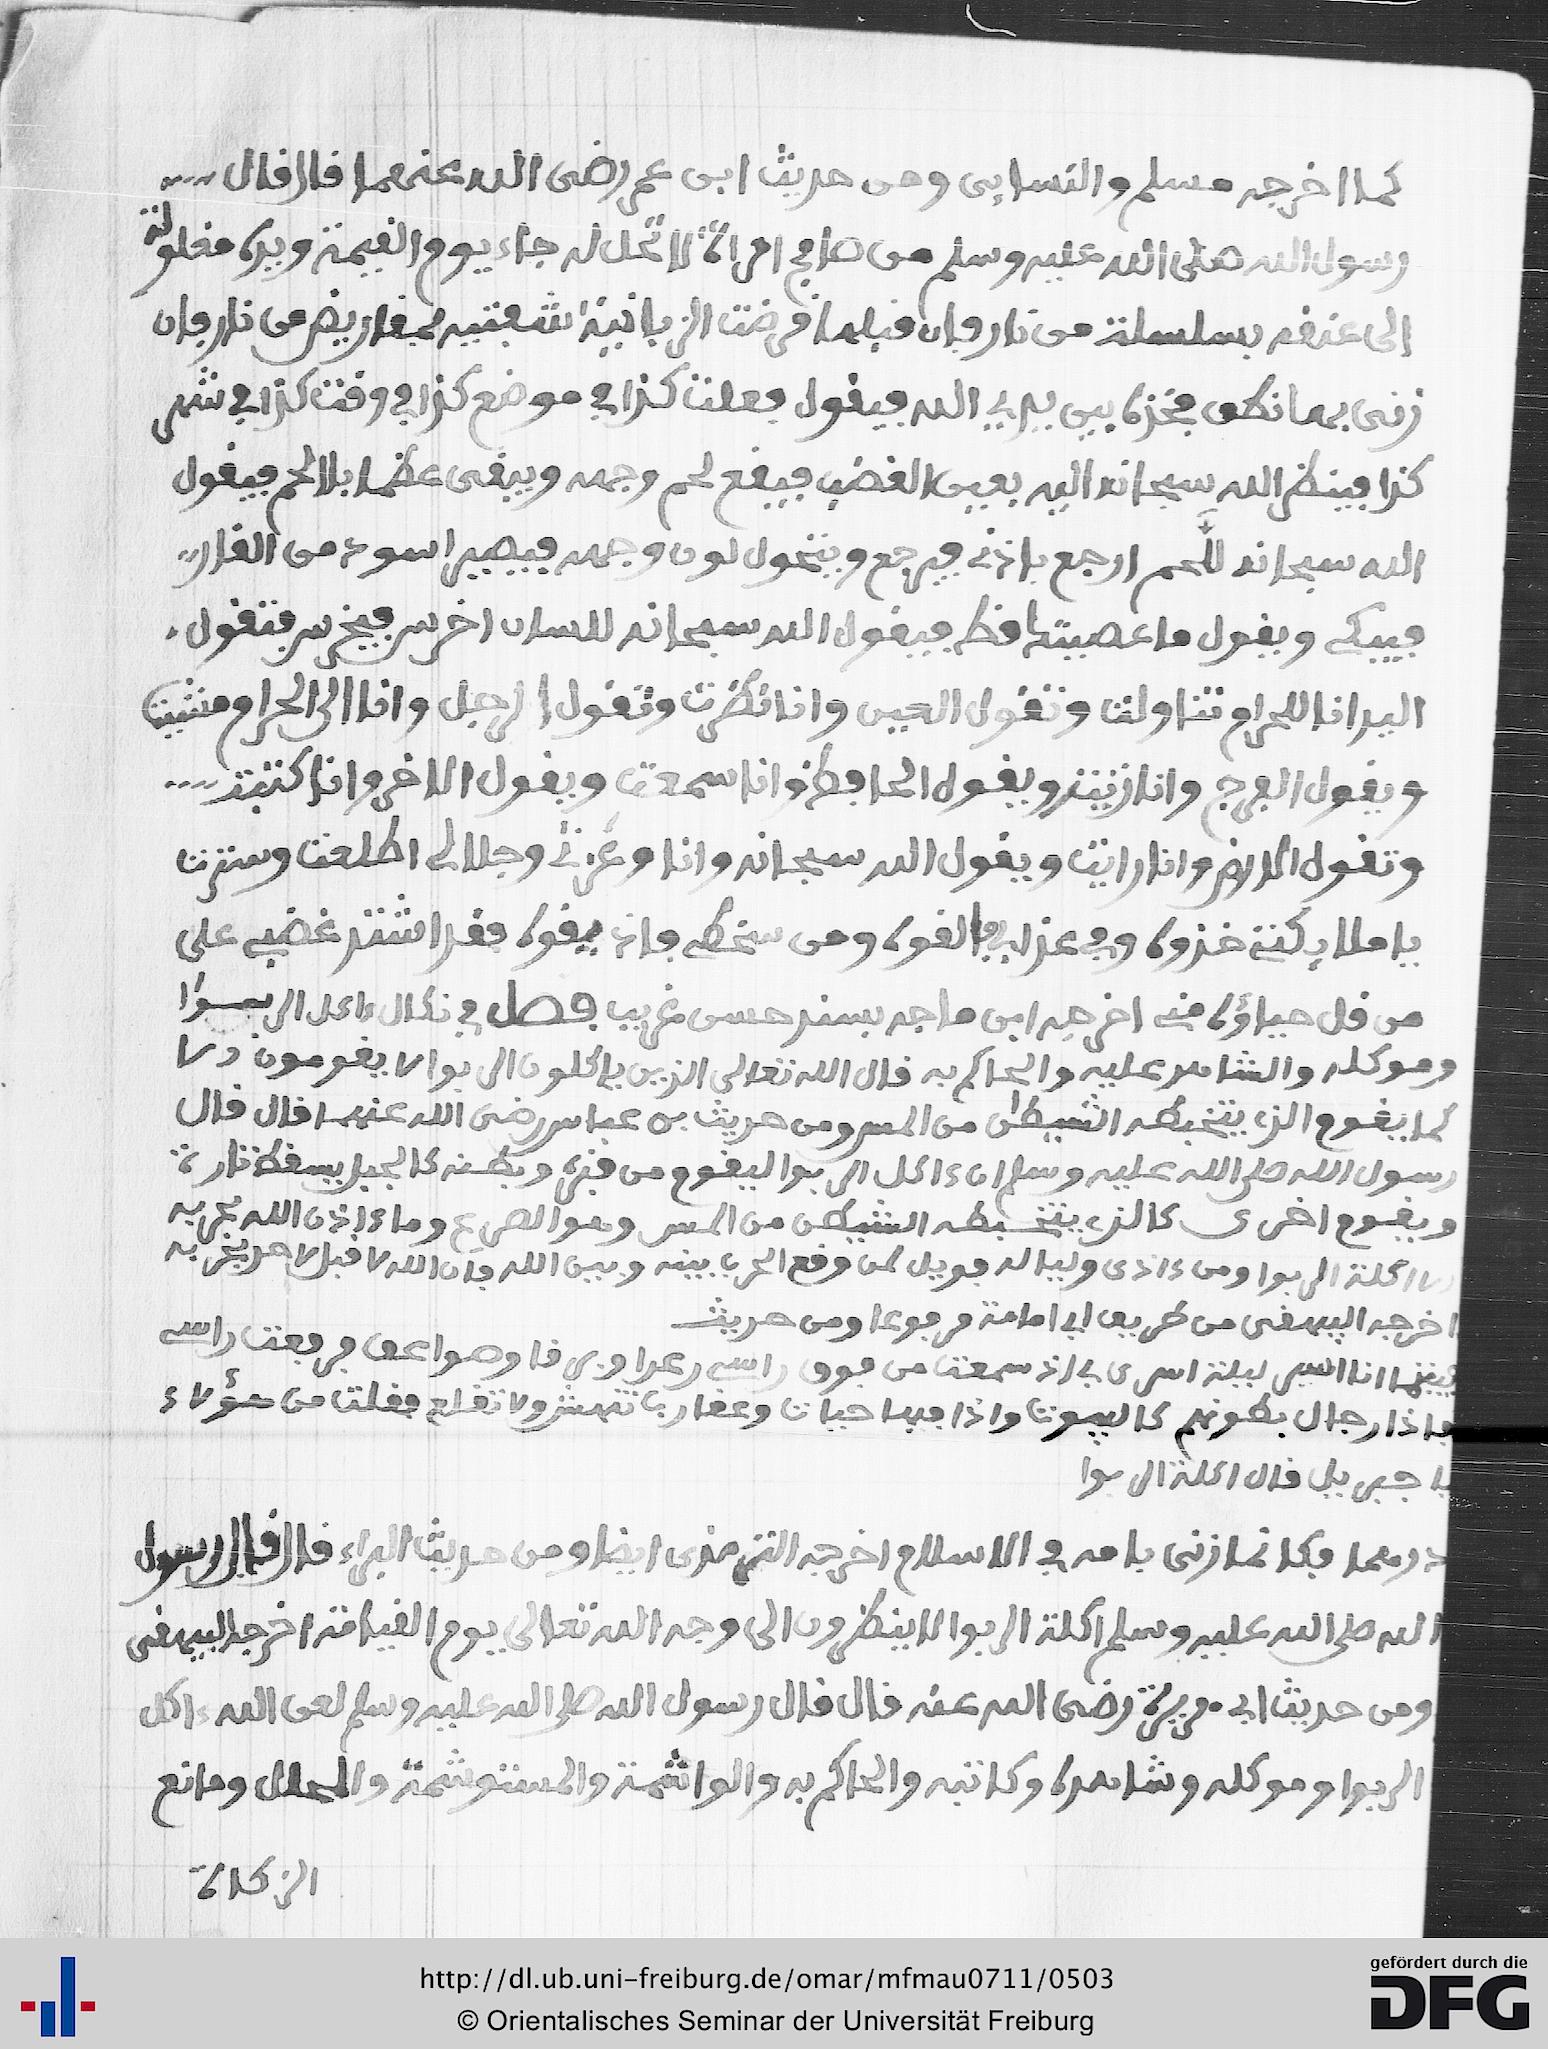 كما اخرجه مسلم والنسايى ومن حديث ابن عمر رضى الله عنهما قال قال
رسول الله صلى الله عليه وسلم من صافح امراة لا تحل له جاء يوم القيمة ويده مغلولة
الى عنقه بسلسلة من نار وان قبلها قرضت الزبانية شفتيه بمقاريض من نار وان
زنى بها نطق فخذه بين يدي الله فيقول فعلت كذا في موضع كذا في وقت كذا في شهر
كذا فينظر الله سبحانه اليه بعين الغضب فيقع لحم وجهه ويبقى عظما بلا لحم فيقول
الله سبحانه للحم ارجع باذني فيرجع ويتحول لون وجهه فيصير اسود من القار
فيبكي ويقول ما عصيتك قط فيقول الله سبحانه للسان اخرس فيخرس فتقول
اليد انا للحرام تناولت وتقول العين وانا نظرت وتقول الرجل وانا الى الحرام مشيت
ويقول الفرج وانا زنيت ويقول الحافظ وانا سمعت ويقول الاخر وانا كتبت
وتقول الارض وانا رايت ويقول الله سبحانه وانا وعزتي وجلالي اطلعت وسترت
يا ملايكتي خذوه وفي عذابي القوه ومن سخطي اذيقوه فقد اشتد غضبي على
من قل حياؤه مني اخرجه ابن ماجه بسند حسن غريب فصل في نكال ءاكل الربوا
وموكله والشاهد عليه والحاكم به قال الله تعالى الذين ياكلون الربوا لا يقومون الا
كما يقوم الذي يتخبطه الشيطن من المس ومن حديث بن عباس رضى الله عنهما قال قال
رسول الله صلى الله عليه وسلم ان ءاكل الربوا ليقوم من قبره وبطنه كالجبل يسقط تارة
ويقوم اخرى كالذي يتخبطه الشيطن من المس وهو الصريع وما ءاذن الله بحربه
الا اكلة الربوا ومن ءاذى وليا له فويل لمن وقع الحرب بينه وبين الله فان الله لا قبل لاحد بحربه
اخرجه البيهقى من طريق ابي امامة مرفوعا ومن حديث
فبينما انا اسير ليلة اسرى بي اذ سمعت من فوق راسي رعدا وبرقا وصواعق فرفعت راسي
فاذا رجال بطونهم كالبيوت واذا فيها حيات وعقارب تنهش ولا تقلع فقلت من هؤلاء
يا جبريل قال اكلة الربوا
درهما فكانما زنى بامه في الاسلام اخرجه الترمذى ايضا ومن حديث البراء قال قال رسول
الله صلى الله عليه وسلم اكلة الربوا لا ينظرون الى وجه الله تعالى يوم القيامة اخرجه البيهقى
ومن حديث ابي هريرة رضى الله عنه قال قال رسول الله صلى الله عليه وسلم لعن الله ءاكل
الربوا وموكله وشاهده وكاتبه والحاكم به والواشمة والمستوشمة والمحلل ومانع
الزكاة
http://dl.ub.uni-freiburg.de/omar/mfmau0711/0503
© Orientalisches Seminar der Universität Freiburg
gefördert durch die
DFG